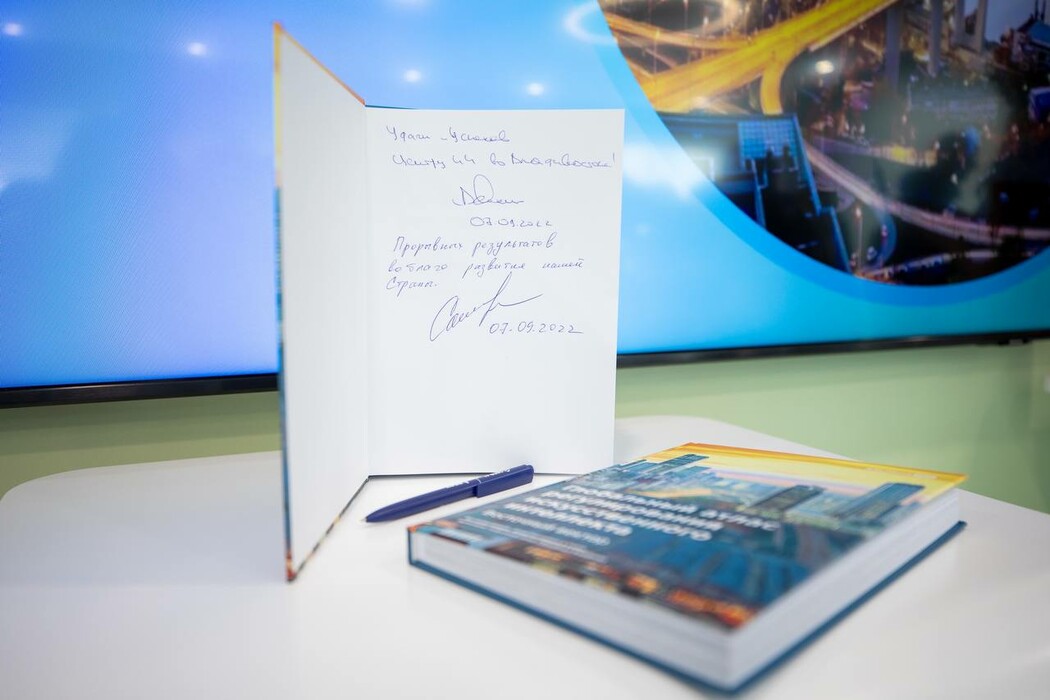 Удачи и успехов
Центру ИИ во Владивостоке!
07.09.2022
Прорывных результатов
во благо развития нашей
Страны.
07.09.2022
Глобальный атлас
регулирования
искусственного
интеллекта